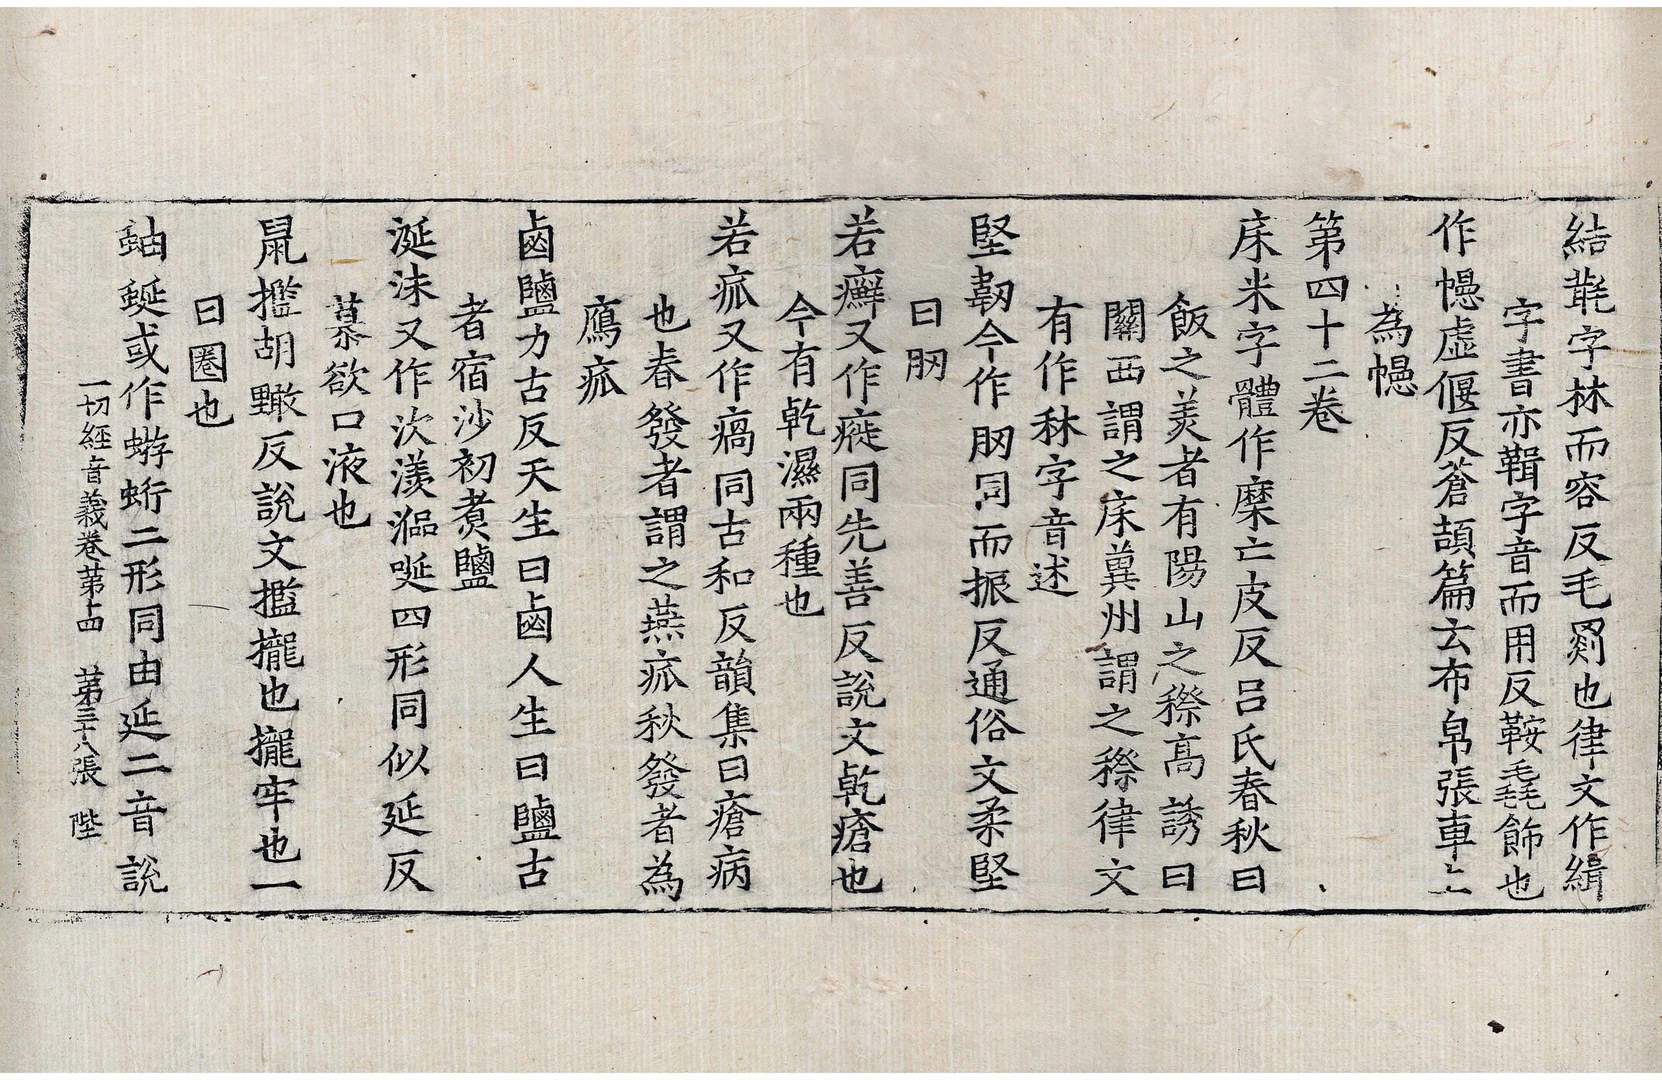 結毦字林而容反毛罽也律文作緝
字書亦鞧字音而用反鞍毳飾也
作幰虛偃反蒼頡篇云布帛張車上
為幰
第四十二卷
床米字體作穈亡皮反吕氏春秋曰
飯之美者有陽山之穄高誘曰
關西謂之床冀州謂之穄律文
有作秫字音述
堅韌今作肕同而振反通俗文柔堅
曰肕
若癬又作㾌同先善反說文乾瘡也
今有乾濕兩種也
若㽿又作瘑同古和反韻集曰瘡病
也春發者謂之燕㽿秋發者為
鴈㽿
鹵鹽力古反天生曰鹵人生曰鹽古
者宿沙初煑鹽
涎沫又作次㳄漾㳂唌四形同似延反
慕欲口液也
鼠㩜胡黤反說文㩜櫳也櫳牢也一
曰圈也
蚰蜒或作蝣蚈二形同由延二音說
一切經音義卷第十四 第三十八張 陛